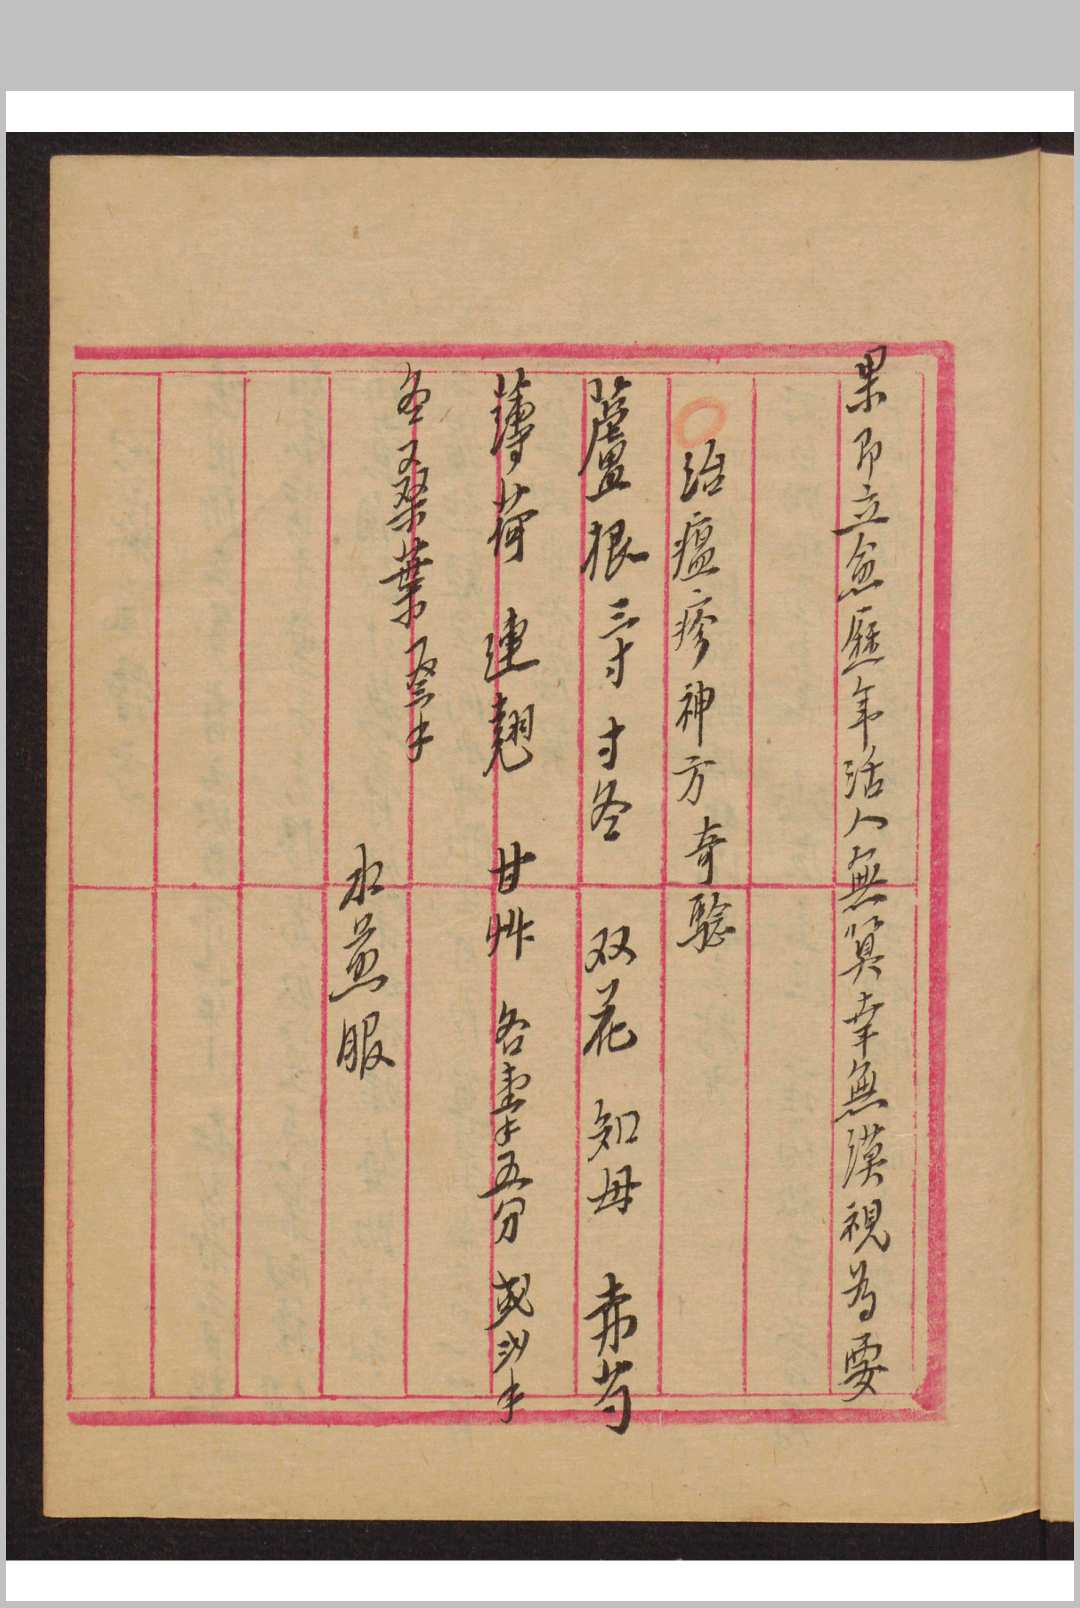 果即立愈歷年活人無算幸無漠視為要
治瘟疹神方奇驗
蘆根三寸 寸冬 双花 知母 赤芍
薄荷 連翹 甘艸 各壹半五分 或沙半
冬桑葉
水煎服